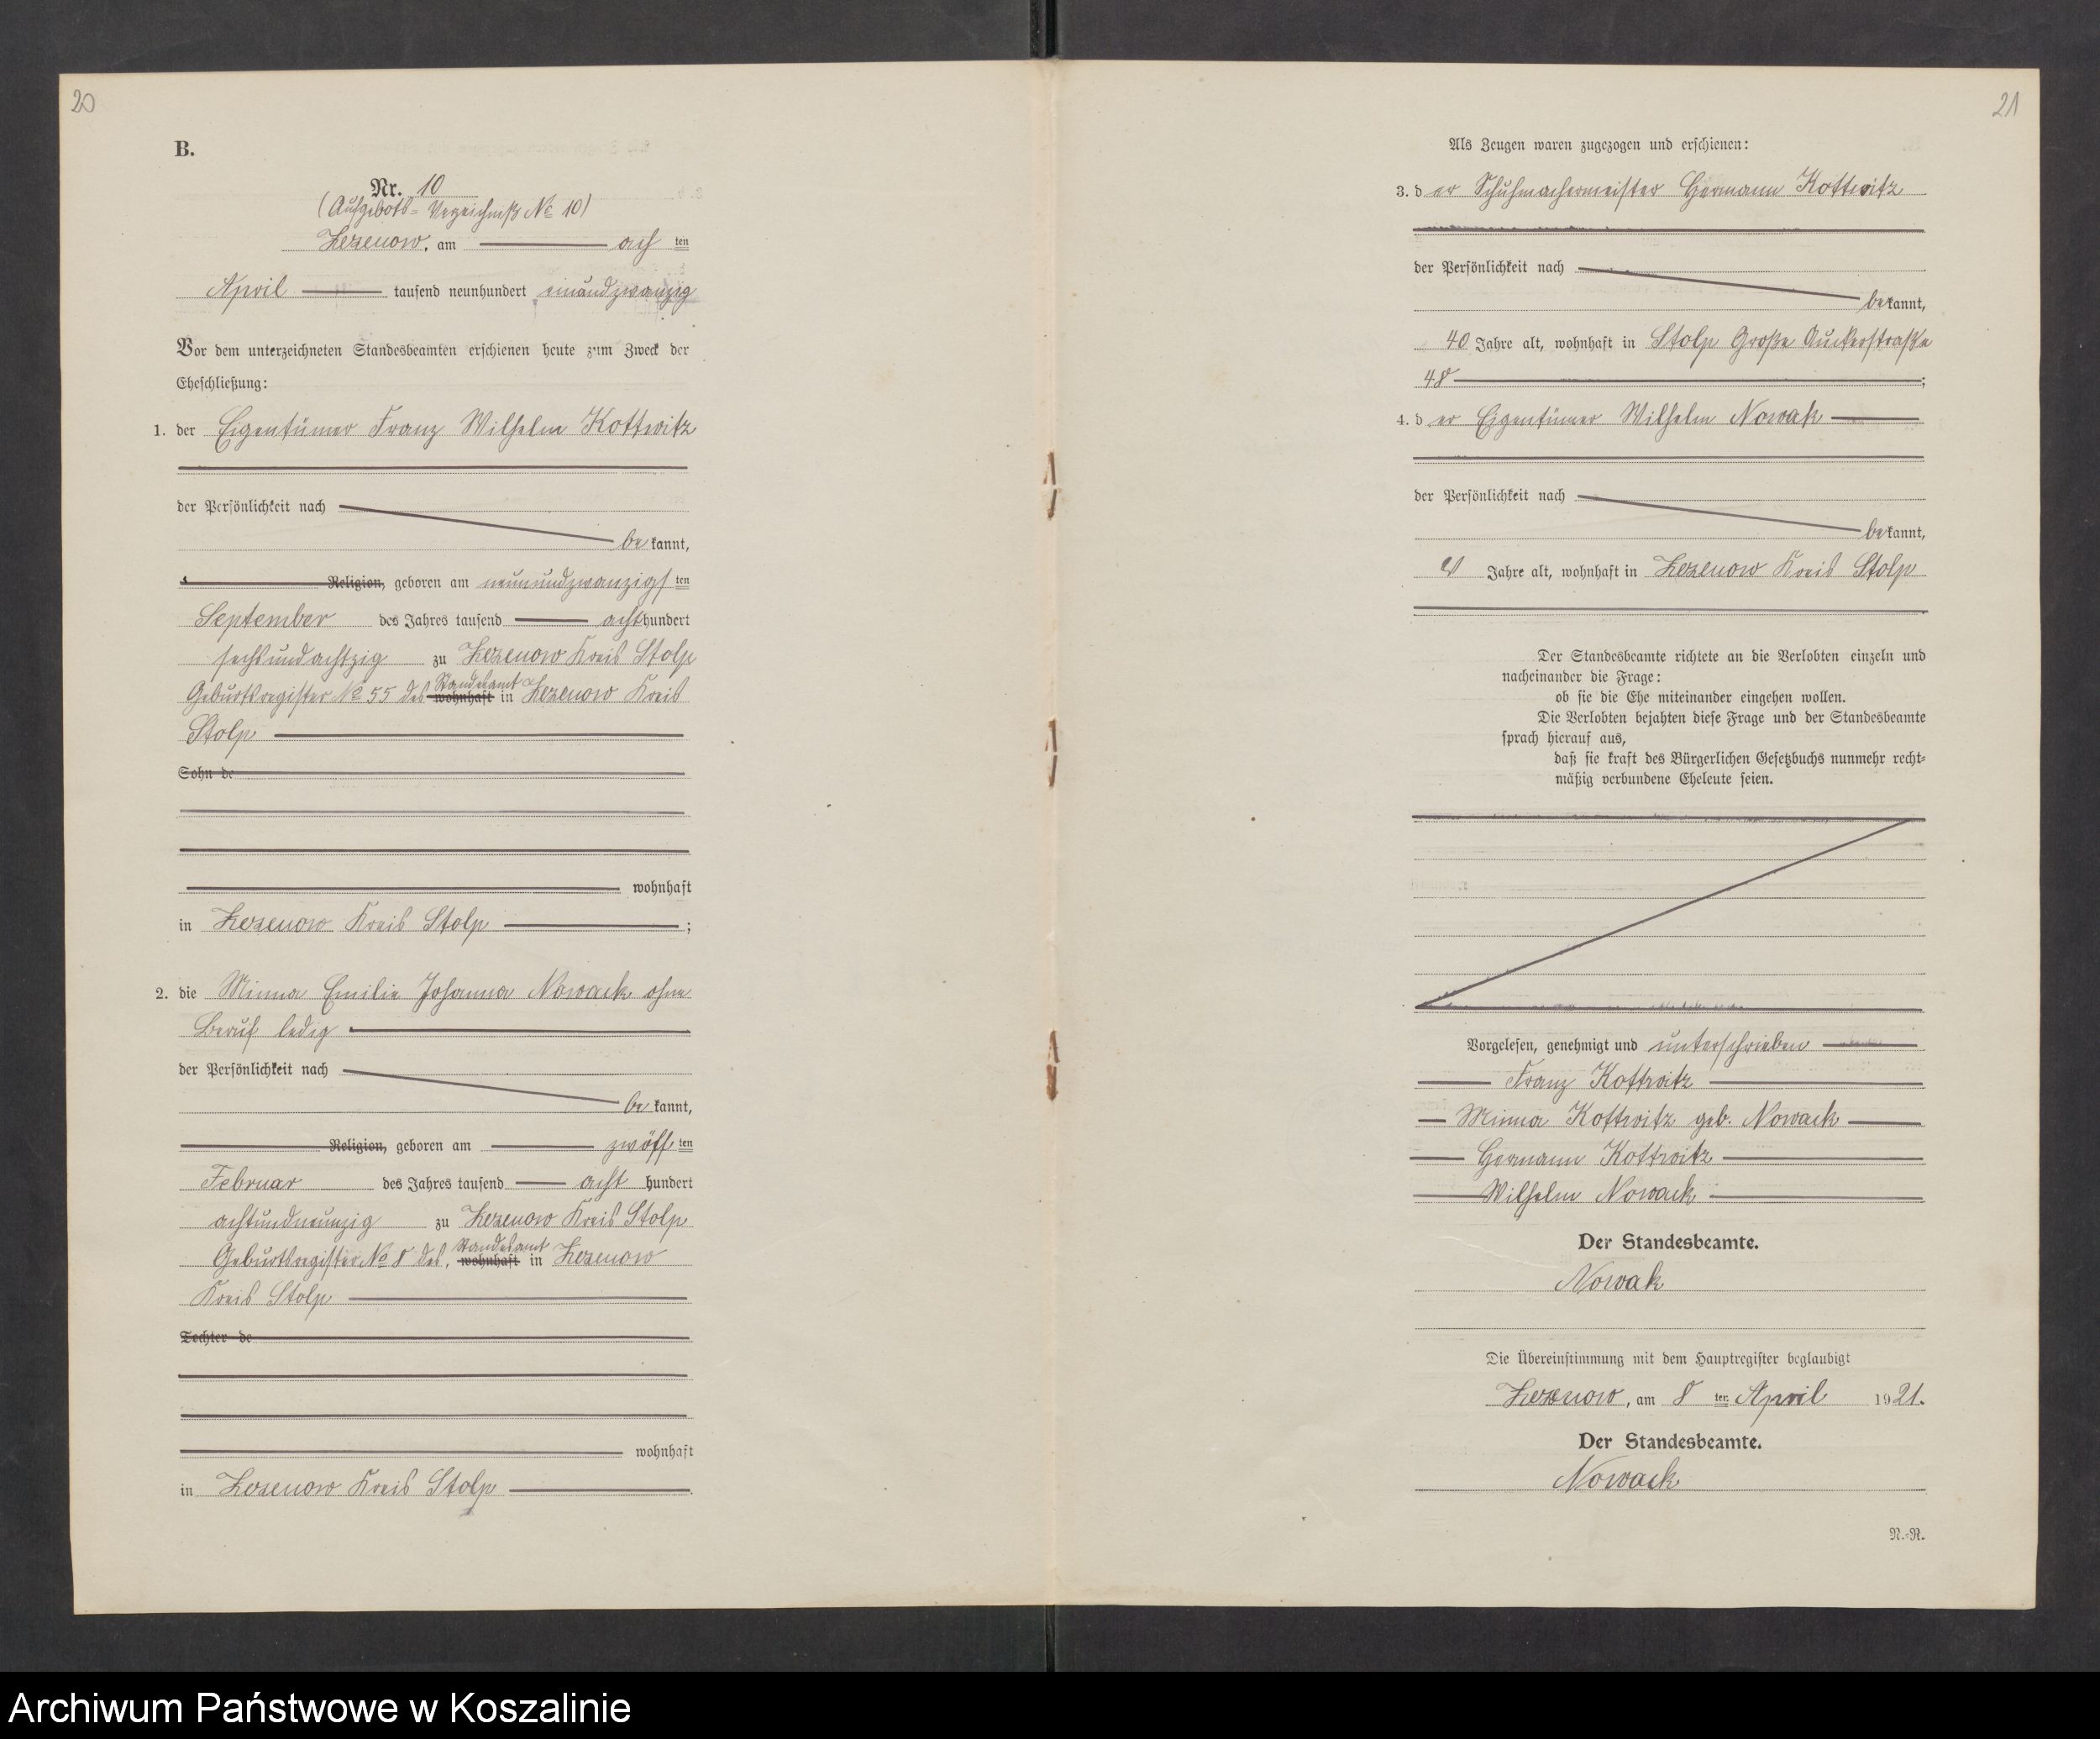 20
B.
Nr. 10
(Aufgebots-Verzeichniß № 10)
Zezenow, am ach ten
April tausend neunhundert einundzwanzig
Vor dem unterzeichneten Standesbeamten erschienen heute zum Zweck der
Eheschließung:
1. der Eigentümer Franz Wilhelm Kottwitz
der Persönlichkeit nach
be kannt,
Religion, geboren am neunundzwanzigs ten
September des Jahres tausend acht hundert
sechsundachtzig zu Zezenow Kreis Stolp
Geburtsregister № 55 des Standesamt wohnhaft in Zezenow Kreis
Stolp
Sohn de
wohnhaft
in Zezenow Kreis Stolp ;
2. die Minna Emilie Johanna Nowack ohne
Beruf ledig
der Persönlichkeit nach
be kannt,
Religion, geboren am zwölf ten
Februar des Jahres tausend acht hundert
achtundneunzig zu Zezenow Kreis Stolp
Geburtsregister № 8 des Standesamt wohnhaft in Zezenow
Kreis Stolp
Tochter de
wohnhaft
in Zezenow Kreis Stolp
21
Als Zeugen waren zugezogen und erschienen:
3. d er Schuhmachermeister Hermann Kottwitz
der Persönlichkeit nach
bekannt,
40 Jahre alt, wohnhaft in Stolp Große Auckerstraße
48 ;
4. d er Eigentümer Wilhelm Nowak
der Persönlichkeit nach
bekannt,
Jahre alt, wohnhaft in Zezenow Kreis Stolp
Der Standesbeamte richtete an die Verlobten einzeln und
nacheinander die Frage:
ob sie die Ehe miteinander eingehen wollen.
Die Verlobten bejahten diese Frage und der Standesbeamte
sprach hierauf aus,
daß sie kraft des Bürgerlichen Gesetzbuchs nunmehr recht-
mäßig verbundene Eheleute seien.
Vorgelesen, genehmigt und unterschrieben
Franz Kottwitz
Minna Kottwitz geb. Nowack
Hermann Kottwitz
Wilhelm Nowack
Der Standesbeamte.
Nowak
Die Übereinstimmung mit dem Hauptregister beglaubigt
Zezenow, am 8 ten April 1921.
Der Standesbeamte.
Nowack
N.-R.
Archiwum Państwowe w Koszalinie